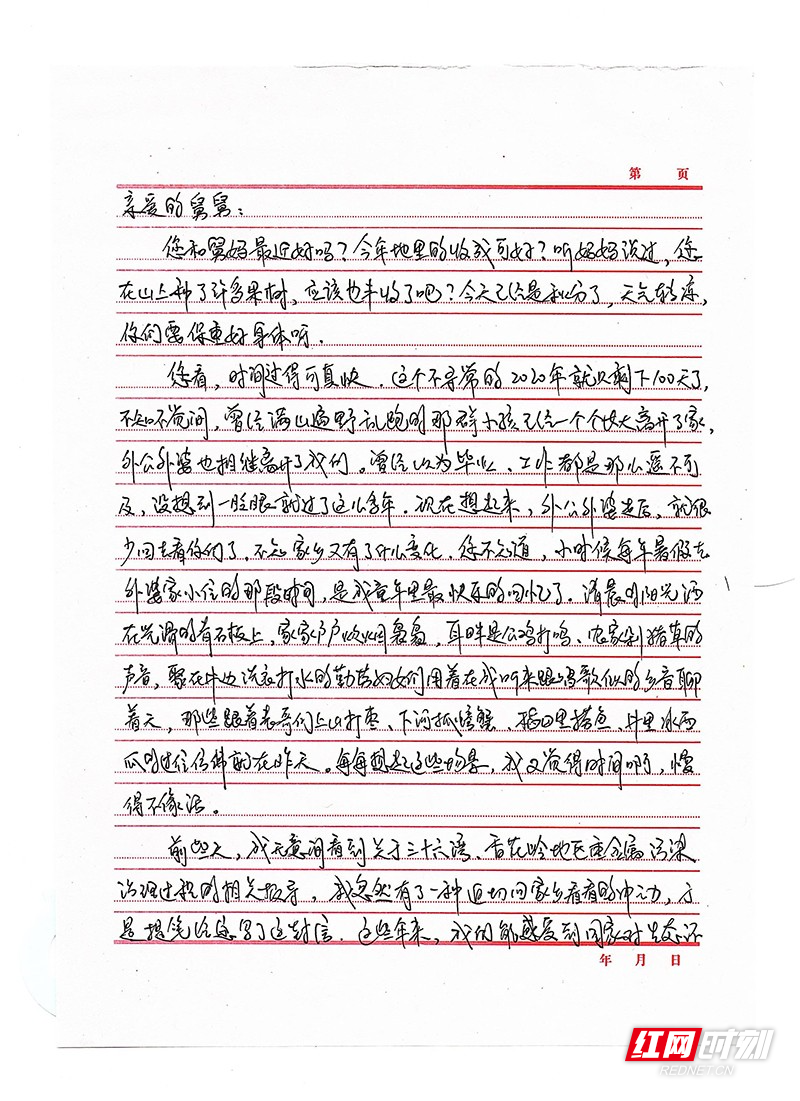 第 页
亲爱的舅舅：
您和舅妈最近好吗？今年地里的收成可好？听妈妈说过，您
在山上种了许多果树，应该也丰收了吧？今天已经是秋分了，天气转凉，
你们要保重好身体呀．
您看，时间过得可真快．这个不寻常的2020年就只剩下100天了，
不知不觉间，曾经满山遍野乱跑的那群小孩已经一个个长大离开了家，
外公外婆也相继离开了我们。曾经以为毕业、工作都是那么遥不可
及，没想到一眨眼就过了这么多年．现在想起来，外公外婆走后，就很
少回去看你们了．不知家乡又有了什么变化．您不知道，小时候每年暑假在
外婆家小住的那段时间，是我童年里最快乐的回忆了．清晨的阳光洒
在光滑的青石板上，家家户户炊烟袅袅，耳畔是公鸡打鸣、农家剁猪草的
声音，聚在井边洗衣打水的勤劳妇女们用着在我听来跟唱歌似的乡音聊
着天，那些跟着表哥们上山打枣、下河抓螃蟹、稻田里摸鱼、井里冰西
瓜的过往仿佛就在昨天。每每想起这些场景，我又觉得时间啊，慢
得不像话。
前些天，我无意间看到关于三十六湾、香花岭地区重金属污染
治理过程的相关报导，我忽然有了一种迫切回家乡看看的冲动，于
是提笔给您写了这封信．这些年来，我们能感受到国家对生态环
年 月 日
红网时刻
REDNET.CN